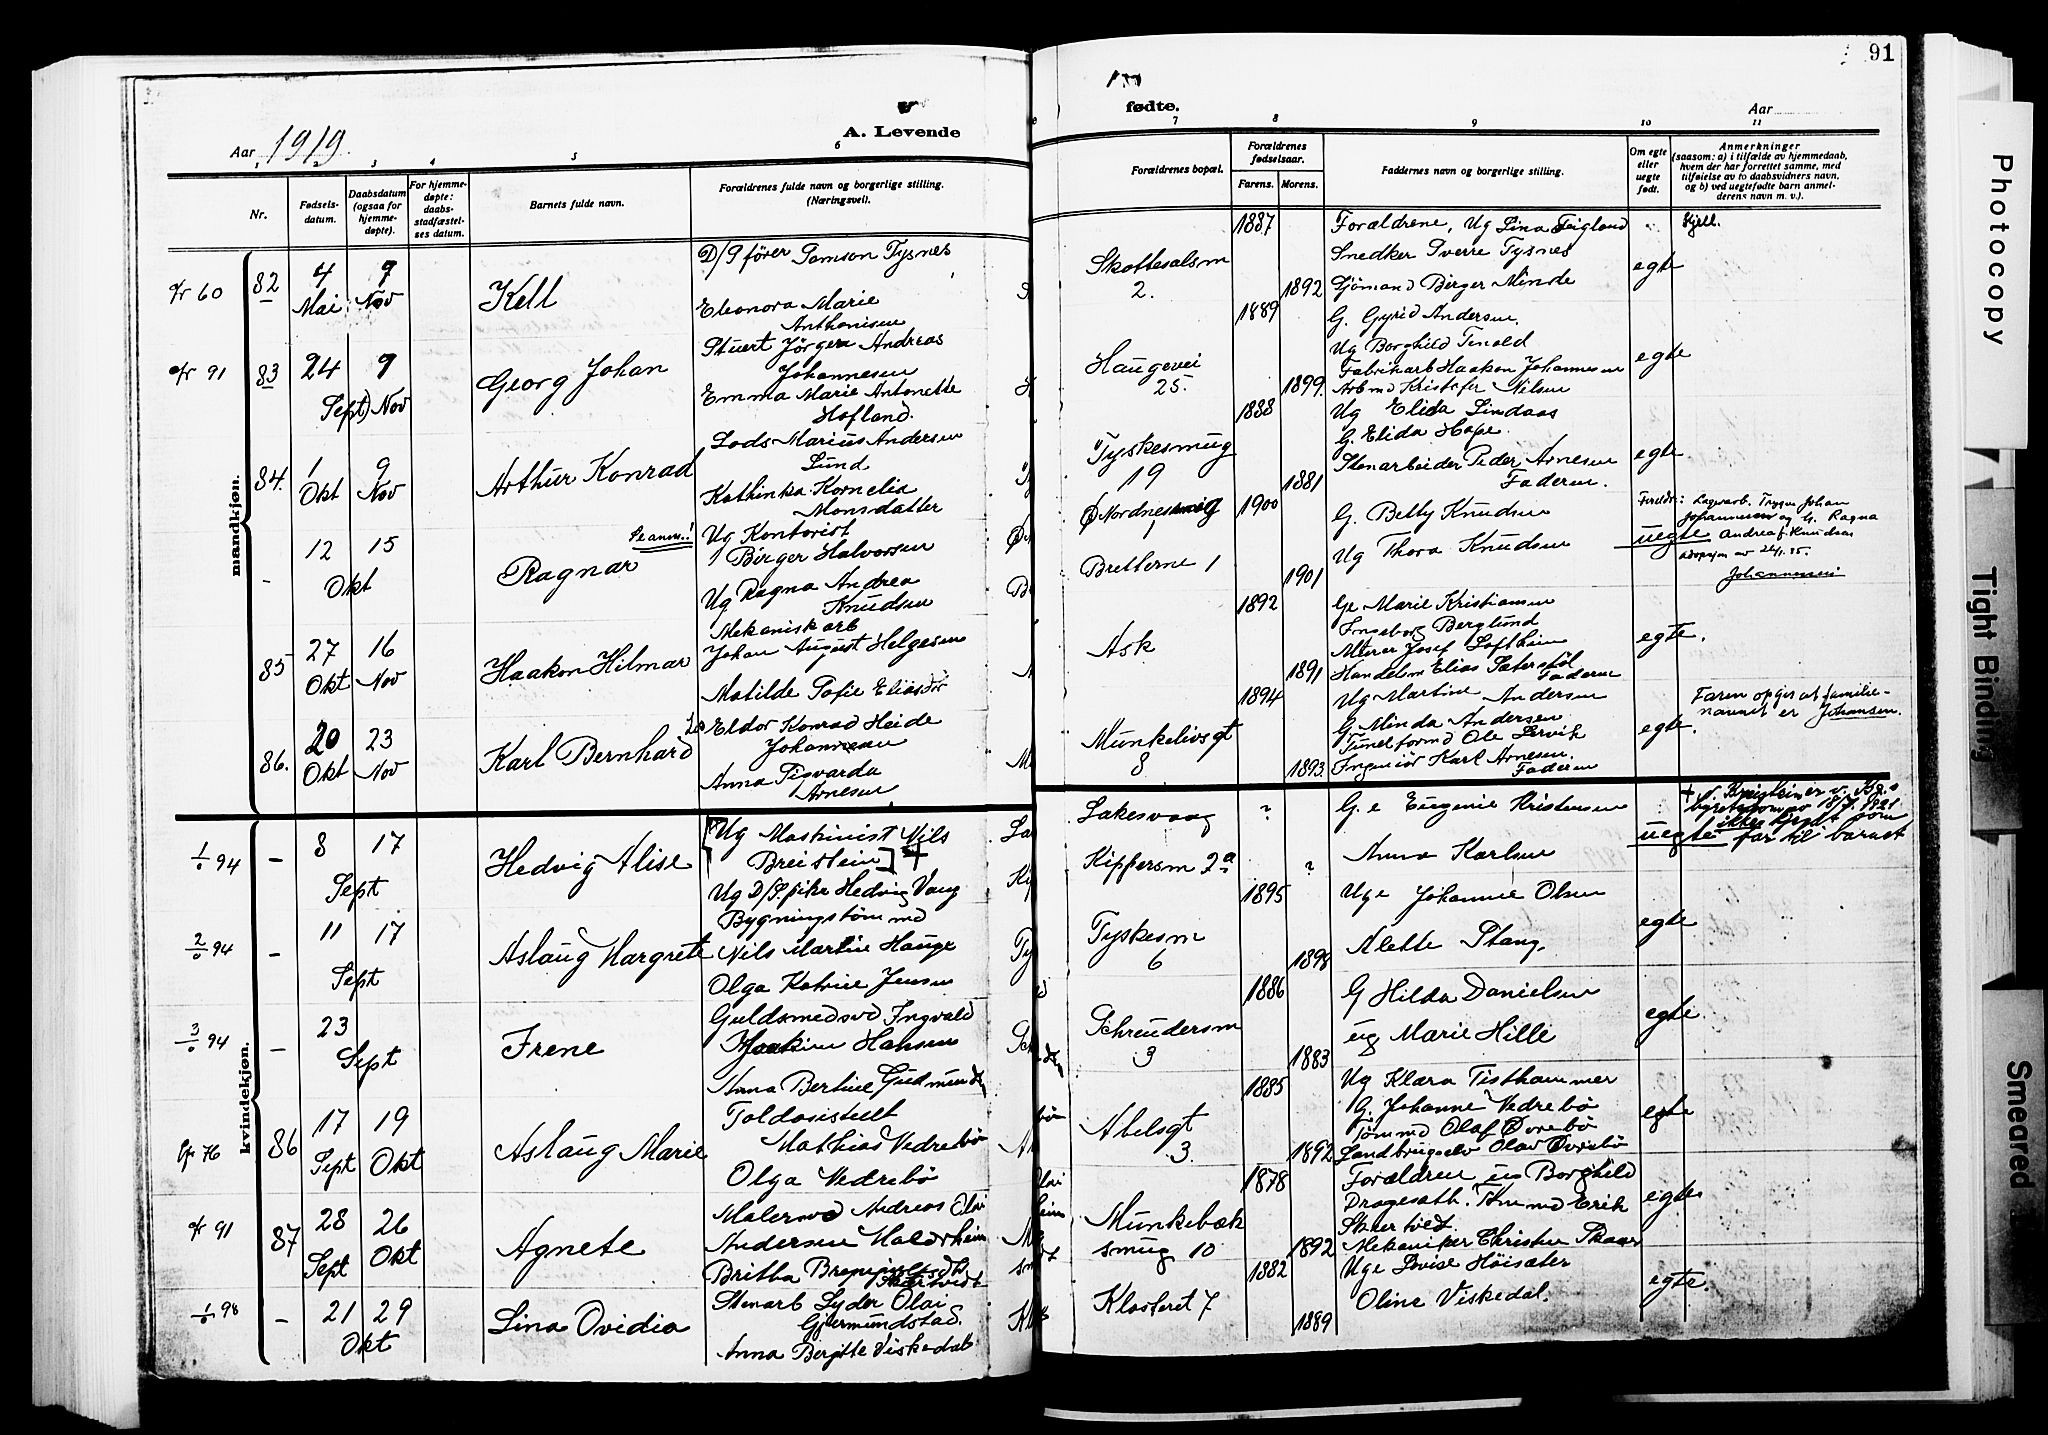 91
Aar 1919.
A. Levende
fødte.
Aar
1 2 3 4 5 6
7 8 9 10 11
Nr.
Fødsels-
datum.
Daabsdatum
(ogsaa for
hjemme-
døpte).
For hjemme-
døpte:
daabs-
stadfæstel-
ses datum.
Barnets fulde navn.
Forældrenes fulde navn og borgerlige stilling.
(Næringsvei).
Forældrenes bopæl.
Forældrenes
fødselsaar.
Farens. Morens.
Faddernes navn og borgerlige stilling.
Om egte
eller
uegte
født.
Anmerkninger
(saasom: a) i tilfælde av hjemmedaab,
hvem der har forrettet samme, med
tilføielse av to daabsvidners navn,
og b) ved uegtefødte barn anmel-
derens navn m. v.).
mandkjøn.
fr 60
82
4
Mai
9
Nov
Kell
D/S fører Samson Tysnes
Eleonora Marie
Anthonisen
Skottesalsm
2.
1887
1892
Forældrene, Ug Lina Feigland
Snedker Sverre Tysnes
Sjömand Birger Minde
egte
Kjell.
fr 91
83
24
Sept
9
Nov
Georg Johan
Stuert Jørgen Andreas
Johannesen
Emma Marie Antonette
Hofland.
Haugevei
25.
1889
1899.
G. Gyrid Andersen.
Ug Borghild Tenold
Fabrikarb Haakon Johannesen
Arbmd Kristofer Nilsen
egte
84.
1
Okt
9
Nov
Arthur Konrad
Lods Marius Andersen
Lund
Kathinka Kornelia
Monsdatter
Tyskesmug
19
1888
1881
Ug Elida Lindaas
G. Elida Hope.
Stenarbeider Peder Arnesen
Faderen.
egte
-
12
15
Okt
Se anm.!
Ragnar
Ug Kontorist
Birger Halvorsen
Ug Ragna Andrea
Knudsen
Ø Nordnesmug
1
Bretterne 1
1900
1901
G. Betty Knudsen
Ug Thora Knudsen
uegte
Foreldre: Lagerarb. Trygve Johan
Johannessen og h. Ragna
Andrea f. Knudsen
adopsjon av 24/1. 35.
Johannessen
85
27
Okt
16
Nov
Haakon Hilmar
Mekanisk arb
Johan August Helgesen
Matilde Sofie Eliasdtr
Ask
1892
1891
Ge Marie Kristiansen
Ingeborg Berglund
Murer Josef Loftheim
Handelsm Elias Sætersdøl
Faderen
egte.
86.
20
Okt
23
Nov
Karl Bernhard
Eldor Konrad Heide
Johannesen
Anna Sigvarda
Arnesen
Munkelivsgt
8
1894
1893.
Ug Martine Andersen
G Minda Andersen
Tunelformd Ole Lervik
Ingeniør Karl Arnesen
Faderen
egte.
Faren opgir at familie-
navnet er Johansen.
kvindekjøn.
1/0 94
-
8
17
Sept
Hedvig Alise
[Ug Maskinist Nils
Breistein] +
Ug D/S.pike Hedvig Vang
Laksevaag
Kippersm 2a
?
?
G. e Eugenie Kristensen
Anna Karlsen
uegte
ikke kjendt som
far til barnet
2/0 94
-
11
17
Sept
Aslaug Margrete
Bygningstømmd
Nils Martin Hauge
Olga Katrine Jensen
Tyskesm
6
1895
1898
Uge Johanne Olsen
Alette Stang.
egte
3/0 94
-
23
Sept
Irene
Guldsmedsvd Ingvald
Joakim Hansen
Anna Bertine Gudmundsd
Schreudersm
3
1886
1883
G Hilda Danielsen
ug Marie Hille
egte
fr 76
86
17
Sept
19
Okt
Aslaug Marie
Toldasistent
Mathias Vedrebö
Olga Vedrebö
Abelsgt
3.
1885
1892
Ug Klara Tisthammer
G. Johanne Vedrebö
Tømmd Olaf Øvrebö
Landbrugselev Olav Øvrebö
egte
fr 91
87
28
Sept
26
Okt
Agnete
Malersvd Andreas Olai
Andersen Haldorheim
Munkebæk
smug 10
1878
1892
Forældren ug Borghild
Dragesæth. Tömmd Erik
Skartvedt
Mekaniker Christen Skaar
egte
1/0 98
-
21
29
Okt
Lina Ovidia
Stenarb Lyder Olai
Gjermundstad.
Anna Bergitte Viskedal
Klosteret 7
1882
1889
Uge Lovise Höisæter
Oline Viskedal.
egte.
Photocopy
Tight Binding
Smeared